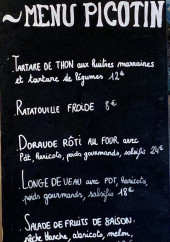 ~MENU PICOTIN
.TARTARE DE THON aux huîtres marraines
et tartare de légumes 12€
.RATATOUILLE FROIDE 8€
.DORAUDE RÔTI AU FOUR avec
Pdt, haricots, pois gourmands, salsifis 24€
.LONGE DE VEAU avec PDT, haricots,
pois gourmands, salsifis 18€
.SALADE DE FRUITS DE SAISON:
pêche blanche, abricots, melon,